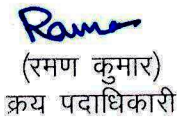 Raman
(रमण कुमार)
क्रय पदाधिकारी